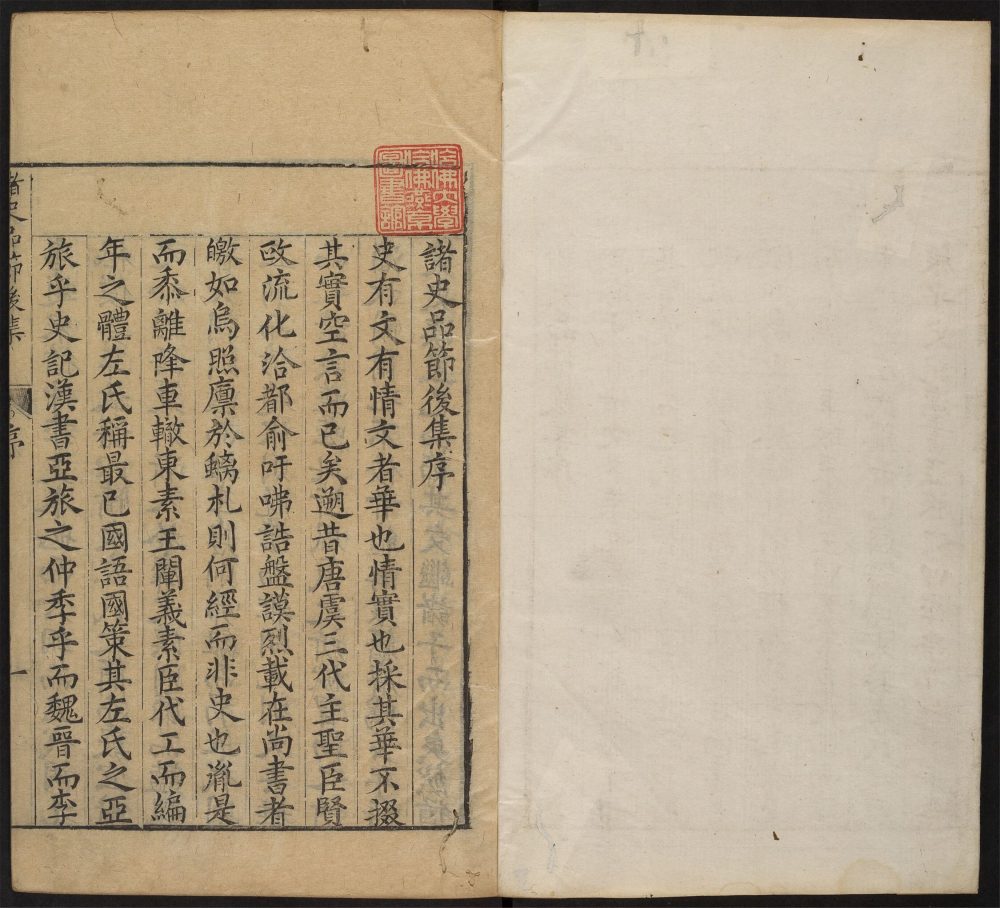 哈佛大學
哈佛燕京
圖書館
諸史品節後集序
史有文有情文者華也情實也採其華不掇
其實空言而已矣遡昔唐虞三代主聖臣賢
政流化洽都俞吁咈誥盤謨烈載在尚書者
皦如烏照廪於䗁札則何經而非史也胤是
而黍離降車轍東素王闡義素臣代工而編
年之體左氏稱最已國語國策其左氏之亞
旅乎史記漢書亞旅之仲季乎而魏晉而李
諸史品節後集
序
一